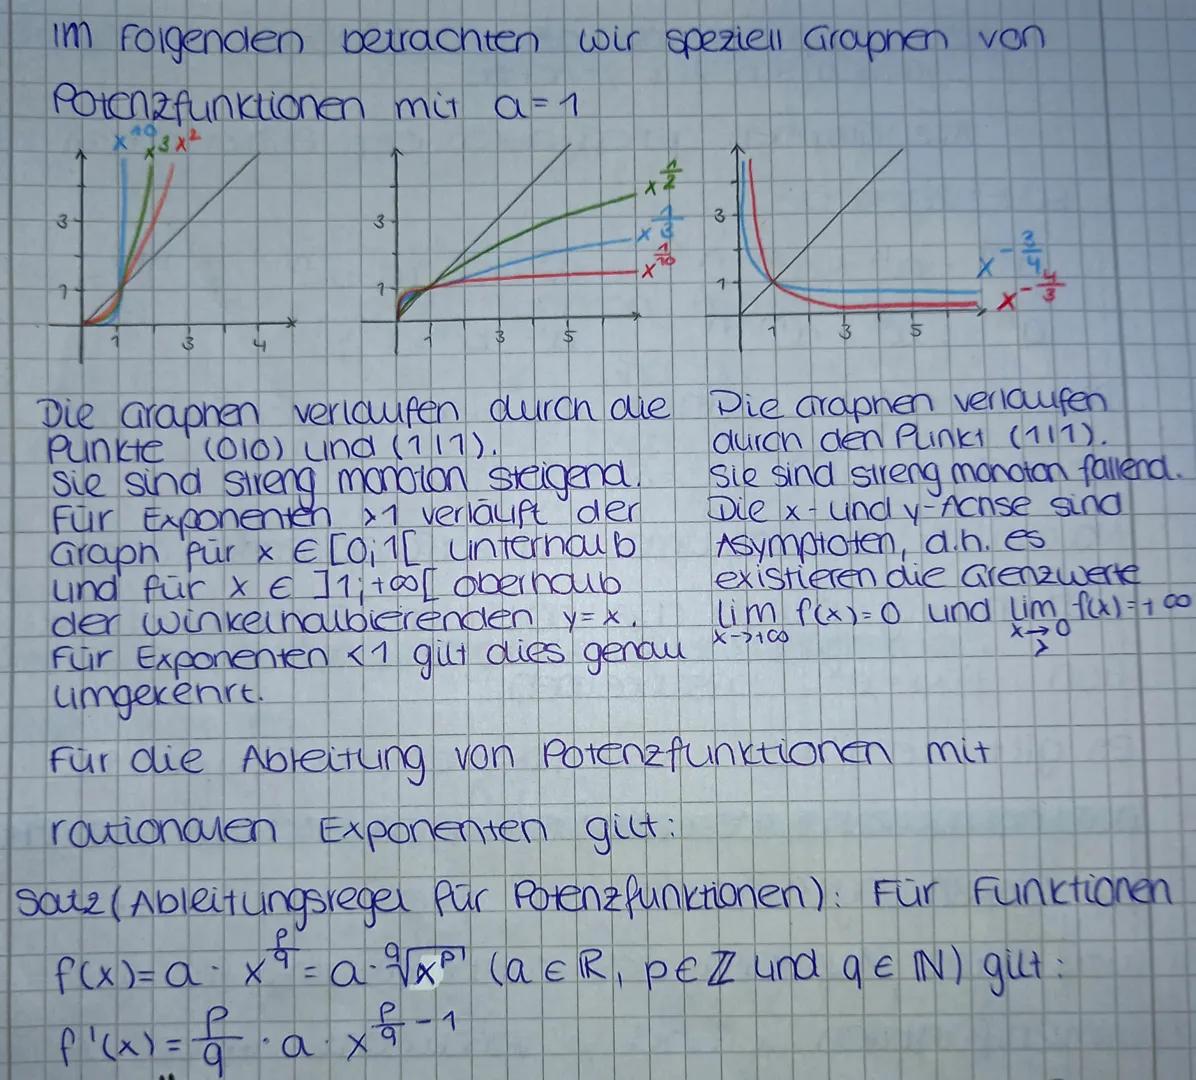 Im Folgenden betrachten wir speziell Graphen von
Potenzfunktionen mit a = 1
x^10 x^3 x^2
3
1
1 3 4
x^(1/2)
x^(1/3)
x^(1/10)
3
1
1 3 5
x^(-3/4)
x^(-4/3)
3
1
1 3 5
Die Graphen verlaufen durch die
Punkte (0|0) und (1|1).
Sie sind streng monoton steigend.
Für Exponenten >1 verläuft der
Graph für x ∈ [0;1[ unterhalb
und für x ∈ ]1;+∞[ oberhalb
der Winkelhalbierenden y=x.
Für Exponenten <1 gilt dies genau
umgekehrt.
Die Graphen verlaufen
durch den Punkt (1|1).
Sie sind streng monoton fallend.
Die x- und y-Achse sind
Asymptoten, d.h. es
existieren die Grenzwerte
lim f(x)=0 und lim f(x)=+∞
x->+∞ x->0
>
Für die Ableitung von Potenzfunktionen mit
rationalen Exponenten gilt:
Satz (Ableitungsregel für Potenzfunktionen): Für Funktionen
f(x) = a · x^(p/q) = a · q√(x^p) (a ∈ ℝ, p ∈ ℤ und q ∈ ℕ) gilt:
f'(x) = p/q · a · x^(p/q - 1)